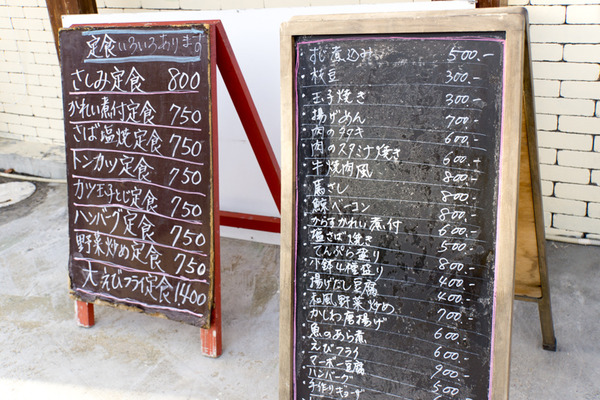 定食いろいろあります
さしみ定食 800
かれい煮付定食 750
さば塩焼定食 750
トンカツ定食 750
カツ玉子とじ定食 750
ハンバーグ定食 750
野菜炒め定食 750
大えびフライ定食 1400
煮込み 500.-
枝豆 300.-
玉子焼き 300.-
揚げめん 700.-
肉のタタキ 600.-
肉のスタミナ焼き 600.-
牛焼肉風 800.-
馬さし 800.-
鯨ベーコン 800.-
からすかれい煮付 600.-
塩さば焼き 500.-
てんぷら盛り 800.-
小鉢4種盛り 400.-
揚げだし豆腐 400.-
和風野菜炒め 700.-
かしわ唐揚げ 600.-
魚のあら煮 600.-
えびフライ 900.-
マーボー豆腐 500.-
ハンバーグ
手作りギョーザ